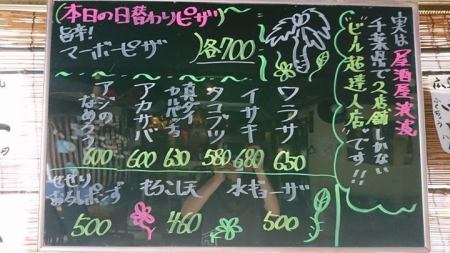 実は居酒屋激減
千葉県で2店舗しかない
"ビール超達人店"です!!
本日の日替わりピザ
旨辛!
マーボーピザ
各700
ワラサ
650
イサキ
680
タコブツ
580
真ダイ
カルパッチョ
630
アカサバ
600
アジの
なめろう
600
水ギョーザ
500
もろこし天
460
せせり
おろしポンズ
500